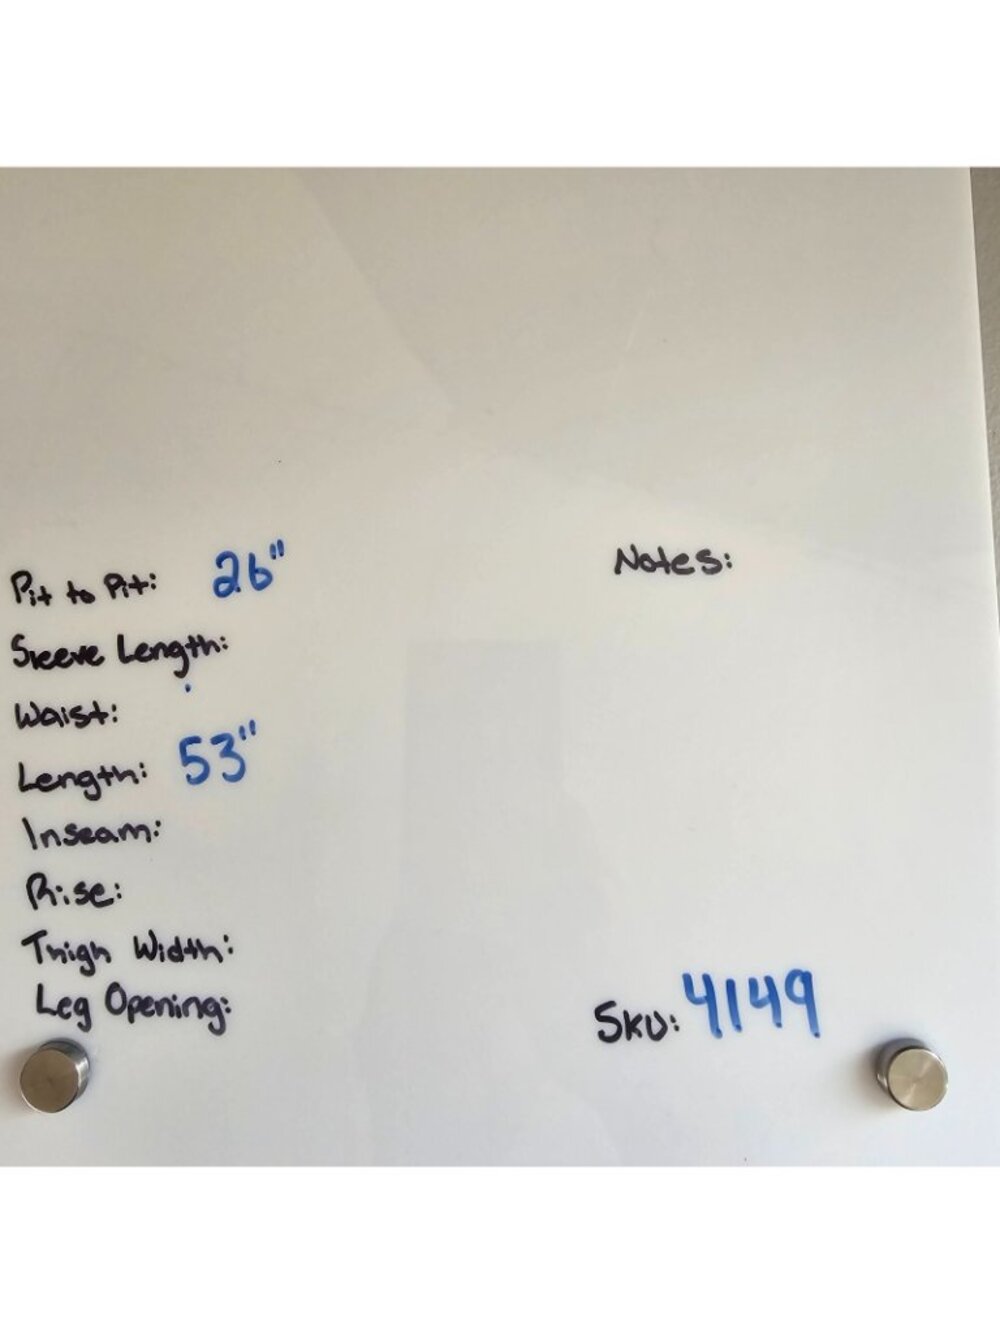 Pit to Pit: 26"
Sleeve Length:
Waist:
Length: 53"
Inseam:
Rise:
Thigh Width:
Leg Opening:
Notes:
SKU: 4149